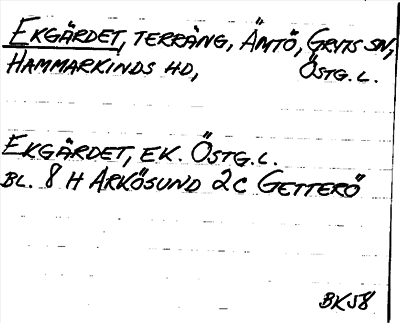 EKGÄRDET, TERRÄNG, ÄMTÖ, GRYTS SN,
HAMMARKINDS HD, ÖSTG. L.
EKGÄRDET, EK. ÖSTG. L.
BL. 8 H ARKÖSUND 2C GETTERÖ
BK58